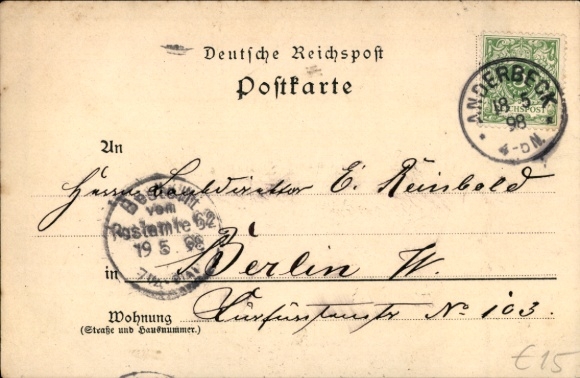 Deutsche Reichspost
Postkarte
ANDERBECK
18 5
98
4-5 N.
REICHSPOST
An
Herrn E. Reinbold
Bestellt
vom
Postamte 62
19 5 98
in Berlin W.
Wohnung Kurfürstenstr No 103.
(Straße und Hausnummer.)
€15